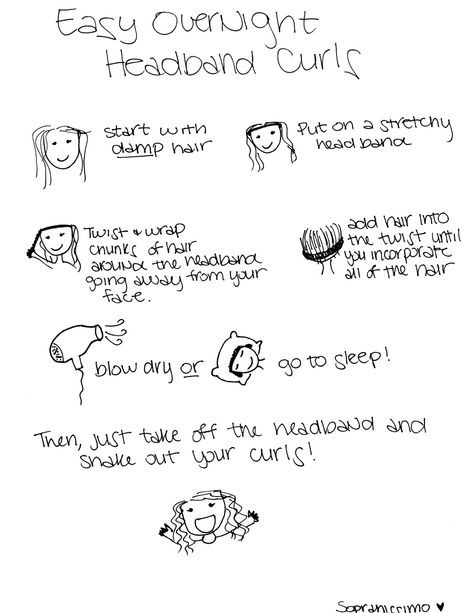 Easy Overnight
Headband Curls
start with
damp hair
Put on a stretchy
headband
Twist & wrap
chunks of hair
around the headband
going away from your
face.
add hair into
the twist until
you incorporate
all of the hair
blow dry or
go to sleep!
Then, just take off the headband and
shake out your curls!
Sopranissimo ♥